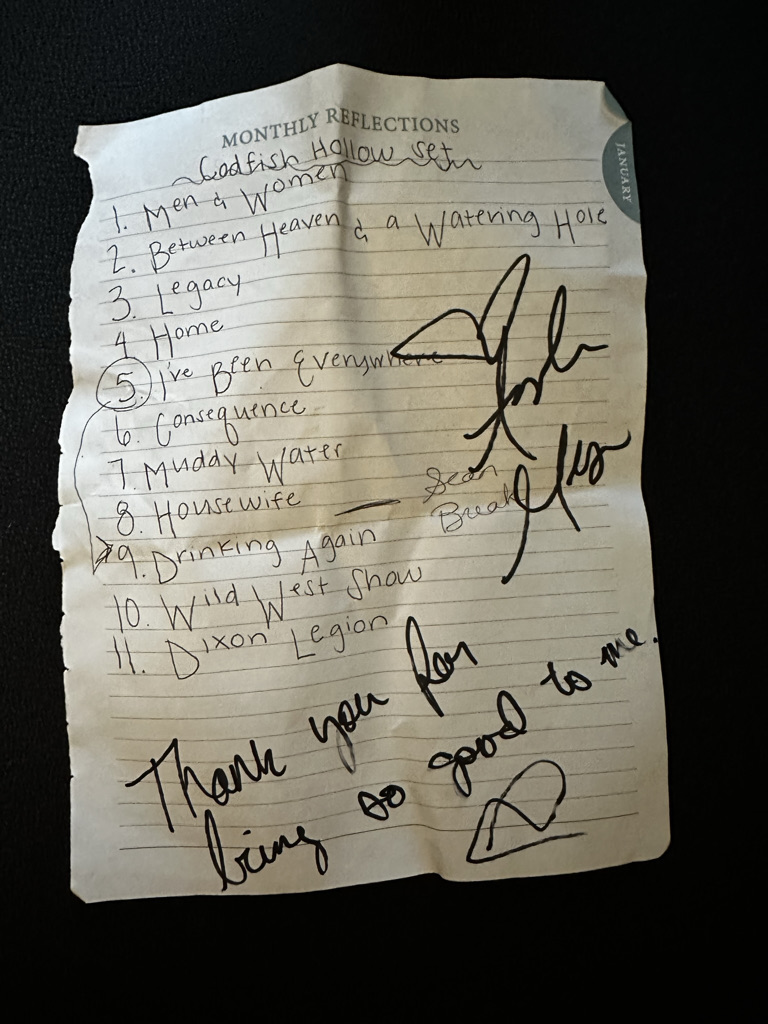 MONTHLY REFLECTIONS
JANUARY
Codfish Hollow Set
1. Men & Women
2. Between Heaven & a Watering Hole
3. Legacy
4 Home
5. I've Been Everywhere
6. Consequence
7. Muddy Water
8. Housewife — Sean Break
9. Drinking Again
10. Wild West Show
11. Dixon Legion
Thank you for
being so good to me.